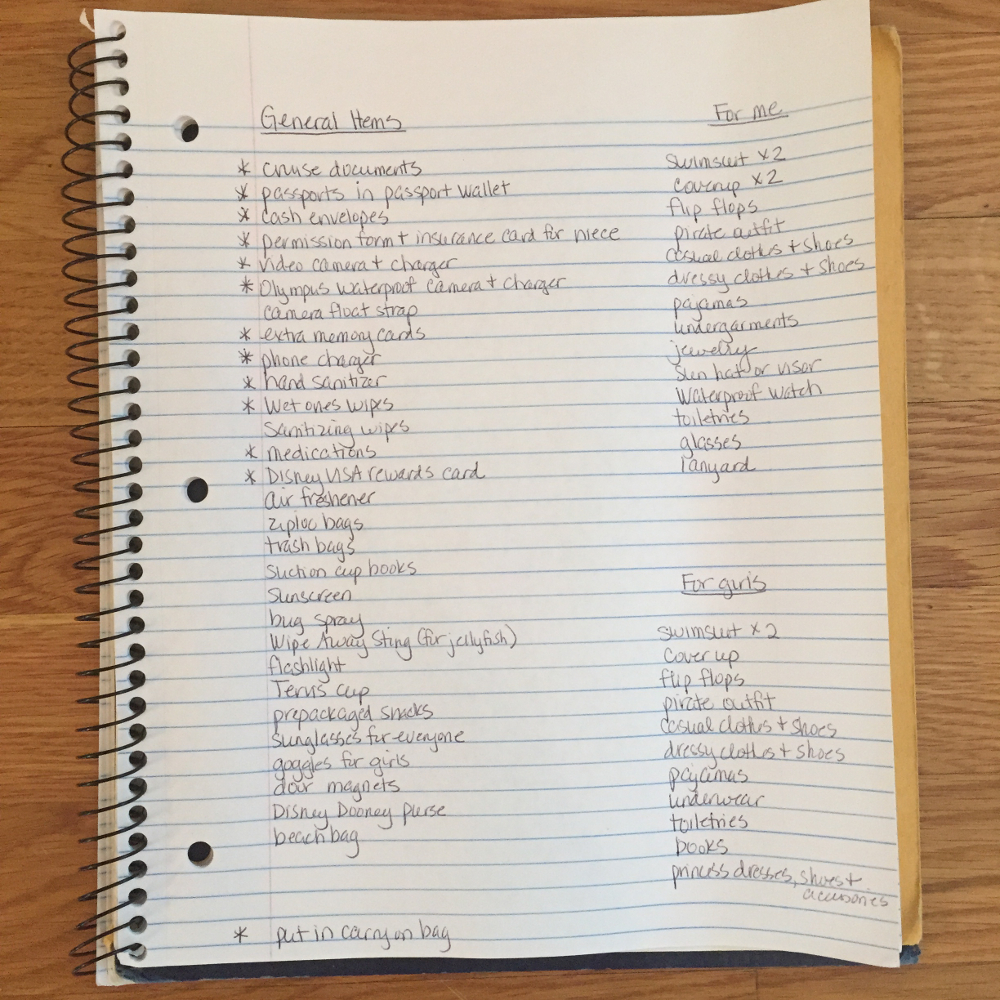 General Items
* cruise documents
* passports in passport wallet
* cash envelopes
* permission form + insurance card for niece
* video camera + charger
* Olympus waterproof camera + charger
camera float strap
* extra memory cards
* phone charger
* hand sanitizer
* Wet ones wipes
Sanitizing wipes
* medications
* Disney VISA rewards card
air freshener
ziploc bags
trash bags
suction cup hooks
sunscreen
bug spray
Wipe Away Sting (for jellyfish)
flashlight
Tervis cup
prepackaged snacks
sunglasses for everyone
goggles for girls
door magnets
Disney Dooney purse
beach bag
* put in carry on bag
For me
swimsuit x2
coverup x2
flip flops
pirate outfit
casual clothes + shoes
dressy clothes + shoes
pajamas
undergarments
jewelry
sun hat or visor
waterproof watch
toiletries
glasses
lanyard
For girls
swimsuit x2
cover up
flip flops
pirate outfit
casual clothes + shoes
dressy clothes + shoes
pajamas
underwear
toiletries
books
princess dresses, shoes +
accessories